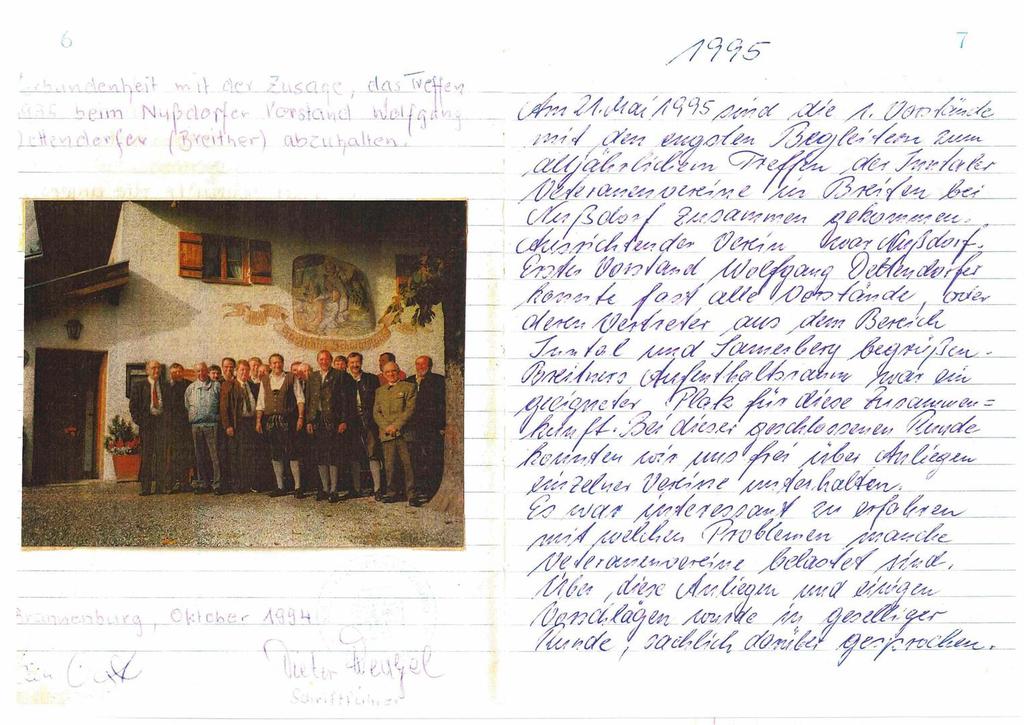 6
Verbundenheit mit der Zusage, das Treffen
1995 beim Nußdorfer Vorstand Wolfgang
Dettendorfer (Breitner) abzuhalten.
Brannenburg, Oktober 1994
Dieter
Schriftführer
7
1995
Am 21. Mai 1995 sind die 1. Vorstände
mit den engsten Begleitern zum
alljährlichem Treffen der Inntaler
Veteranenvereine in Breiten bei
Nußdorf zusammen gekommen.
Ausrichtender Verein war Nußdorf.
Erster Vorstand Wolfgang Dettendorfer
konnte fast alle Vorstände, oder
deren Vertreter aus dem Bereich
Inntal und Samerberg begrüßen.
Breitners Aufenthaltsraum war ein
geeigneter Platz für diese Zusammen=
kunft. Bei dieser geschlossenen Runde
konnten wir uns frei über Anliegen
einzelner Vereine unterhalten.
Es war interessant zu erfahren
mit welchen Problemen manche
Veteranenvereine belastet sind.
Über diese Anliegen und einigen
Vorschlägen wurde in geselliger
Runde, sachlich darüber gesprochen.